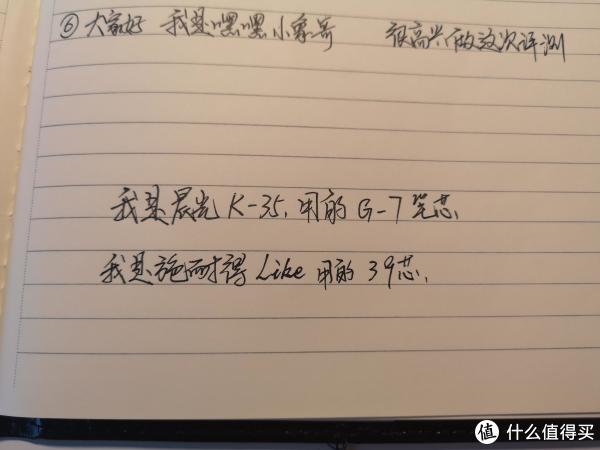 ⑥大家好 我是嘿嘿小象哥 很高兴做这次评测
我是晨光K-35,用的G-7笔芯
我是施耐得Like用的39芯,
值 什么值得买